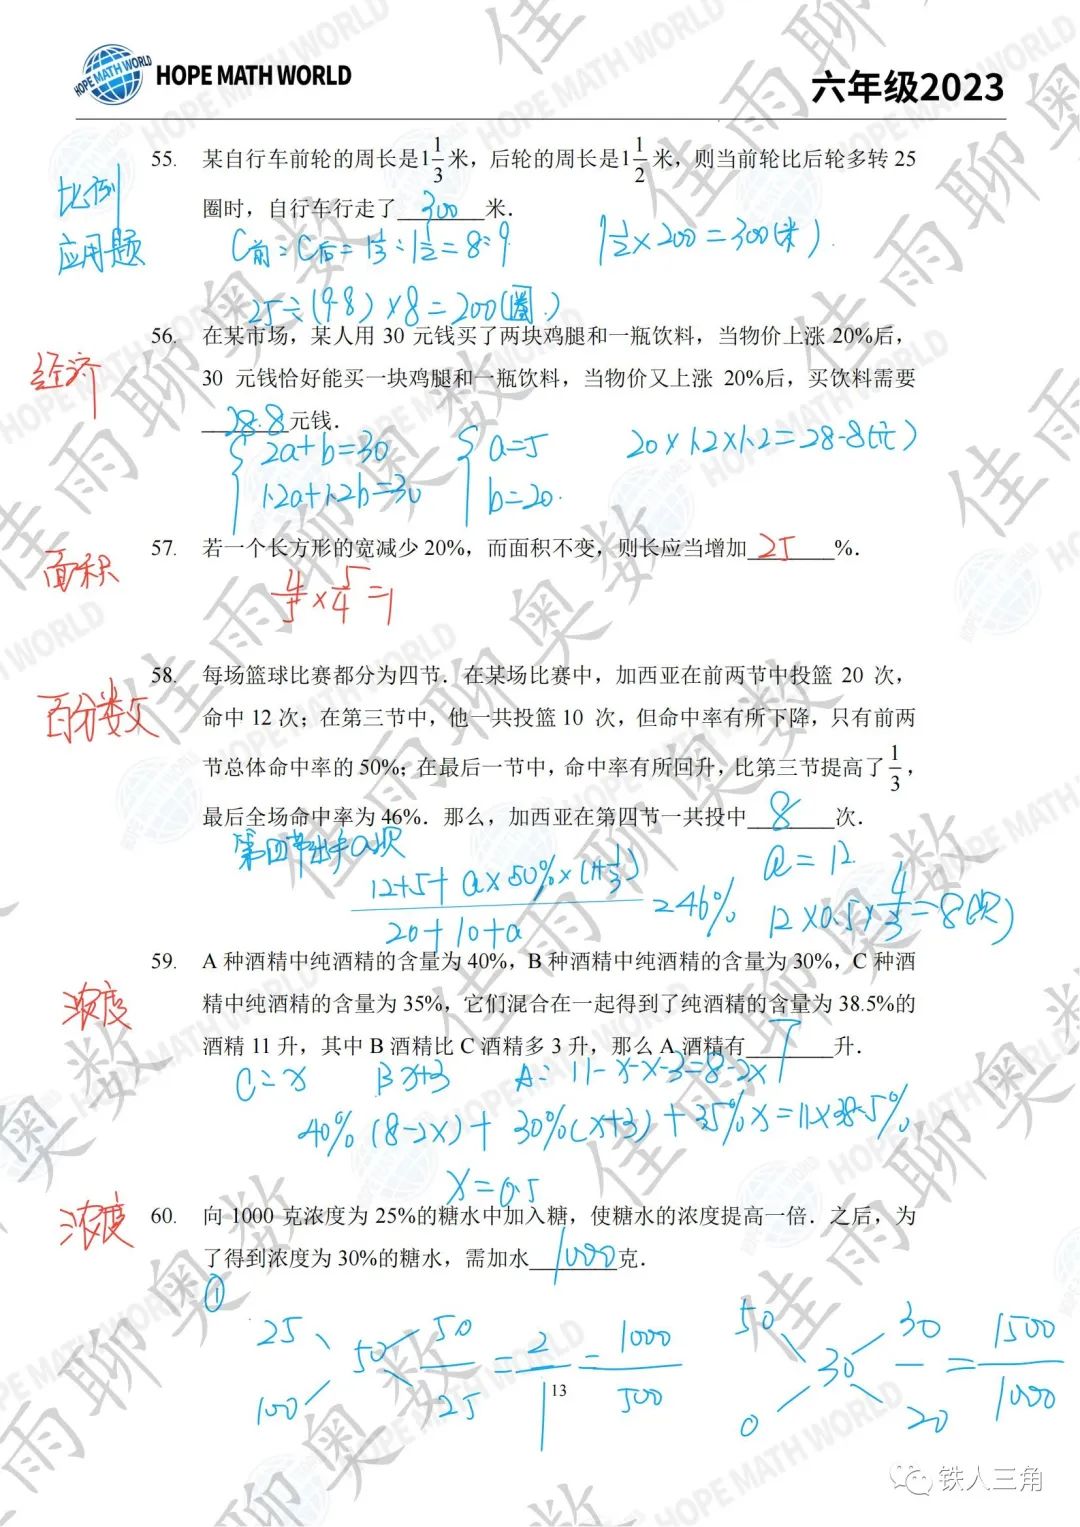 HOPE MATH WORLD
六年级2023
55. 某自行车前轮的周长是1 1/3 米，后轮的周长是1 1/2 米，则当前轮比后轮多转 25
圈时，自行车行走了 300 米．
比例
应用题
C前：C后=1 1/3：1 1/2=8：9
1 1/2×200=300(米)
25÷(9-8)×8=200(圈)
56. 在某市场，某人用 30 元钱买了两块鸡腿和一瓶饮料，当物价上涨 20%后，
30 元钱恰好能买一块鸡腿和一瓶饮料，当物价又上涨 20%后，买饮料需要
28.8 元钱．
经济
2a+b=30
1.2a+1.2b=30
a=5
b=20.
20×1.2×1.2=28.8(元)
57. 若一个长方形的宽减少 20%，而面积不变，则长应当增加 25 %．
面积
4/5×5/4=1
58. 每场篮球比赛都分为四节．在某场比赛中，加西亚在前两节中投篮 20 次，
命中 12 次；在第三节中，他一共投篮 10 次，但命中率有所下降，只有前两
节总体命中率的 50%；在最后一节中，命中率有所回升，比第三节提高了 1/3，
最后全场命中率为 46%．那么，加西亚在第四节一共投中 8 次．
百分数
第四节出手a次
12+5+a×50%×(1+1/3)
20+10+a
=46%
a=12
12×0.5×4/3=8(次)
59. A 种酒精中纯酒精的含量为 40%，B 种酒精中纯酒精的含量为 30%，C 种酒
精中纯酒精的含量为 35%，它们混合在一起得到了纯酒精的含量为 38.5%的
酒精 11 升，其中 B 酒精比 C 酒精多 3 升，那么 A 酒精有 7 升．
浓度
C=x B x+3 A：11-x-x-3=8-2x
40%(8-2x)+30%(x+3)+35%x=11×38.5%
x=0.5
60. 向 1000 克浓度为 25%的糖水中加入糖，使糖水的浓度提高一倍．之后，为
了得到浓度为 30%的糖水，需加水 1000 克．
浓度
①
25 100 50 50/25=2/1=1000/500
50 0 30 30/20=1500/1000
13
铁人三角
佳雨聊奥数